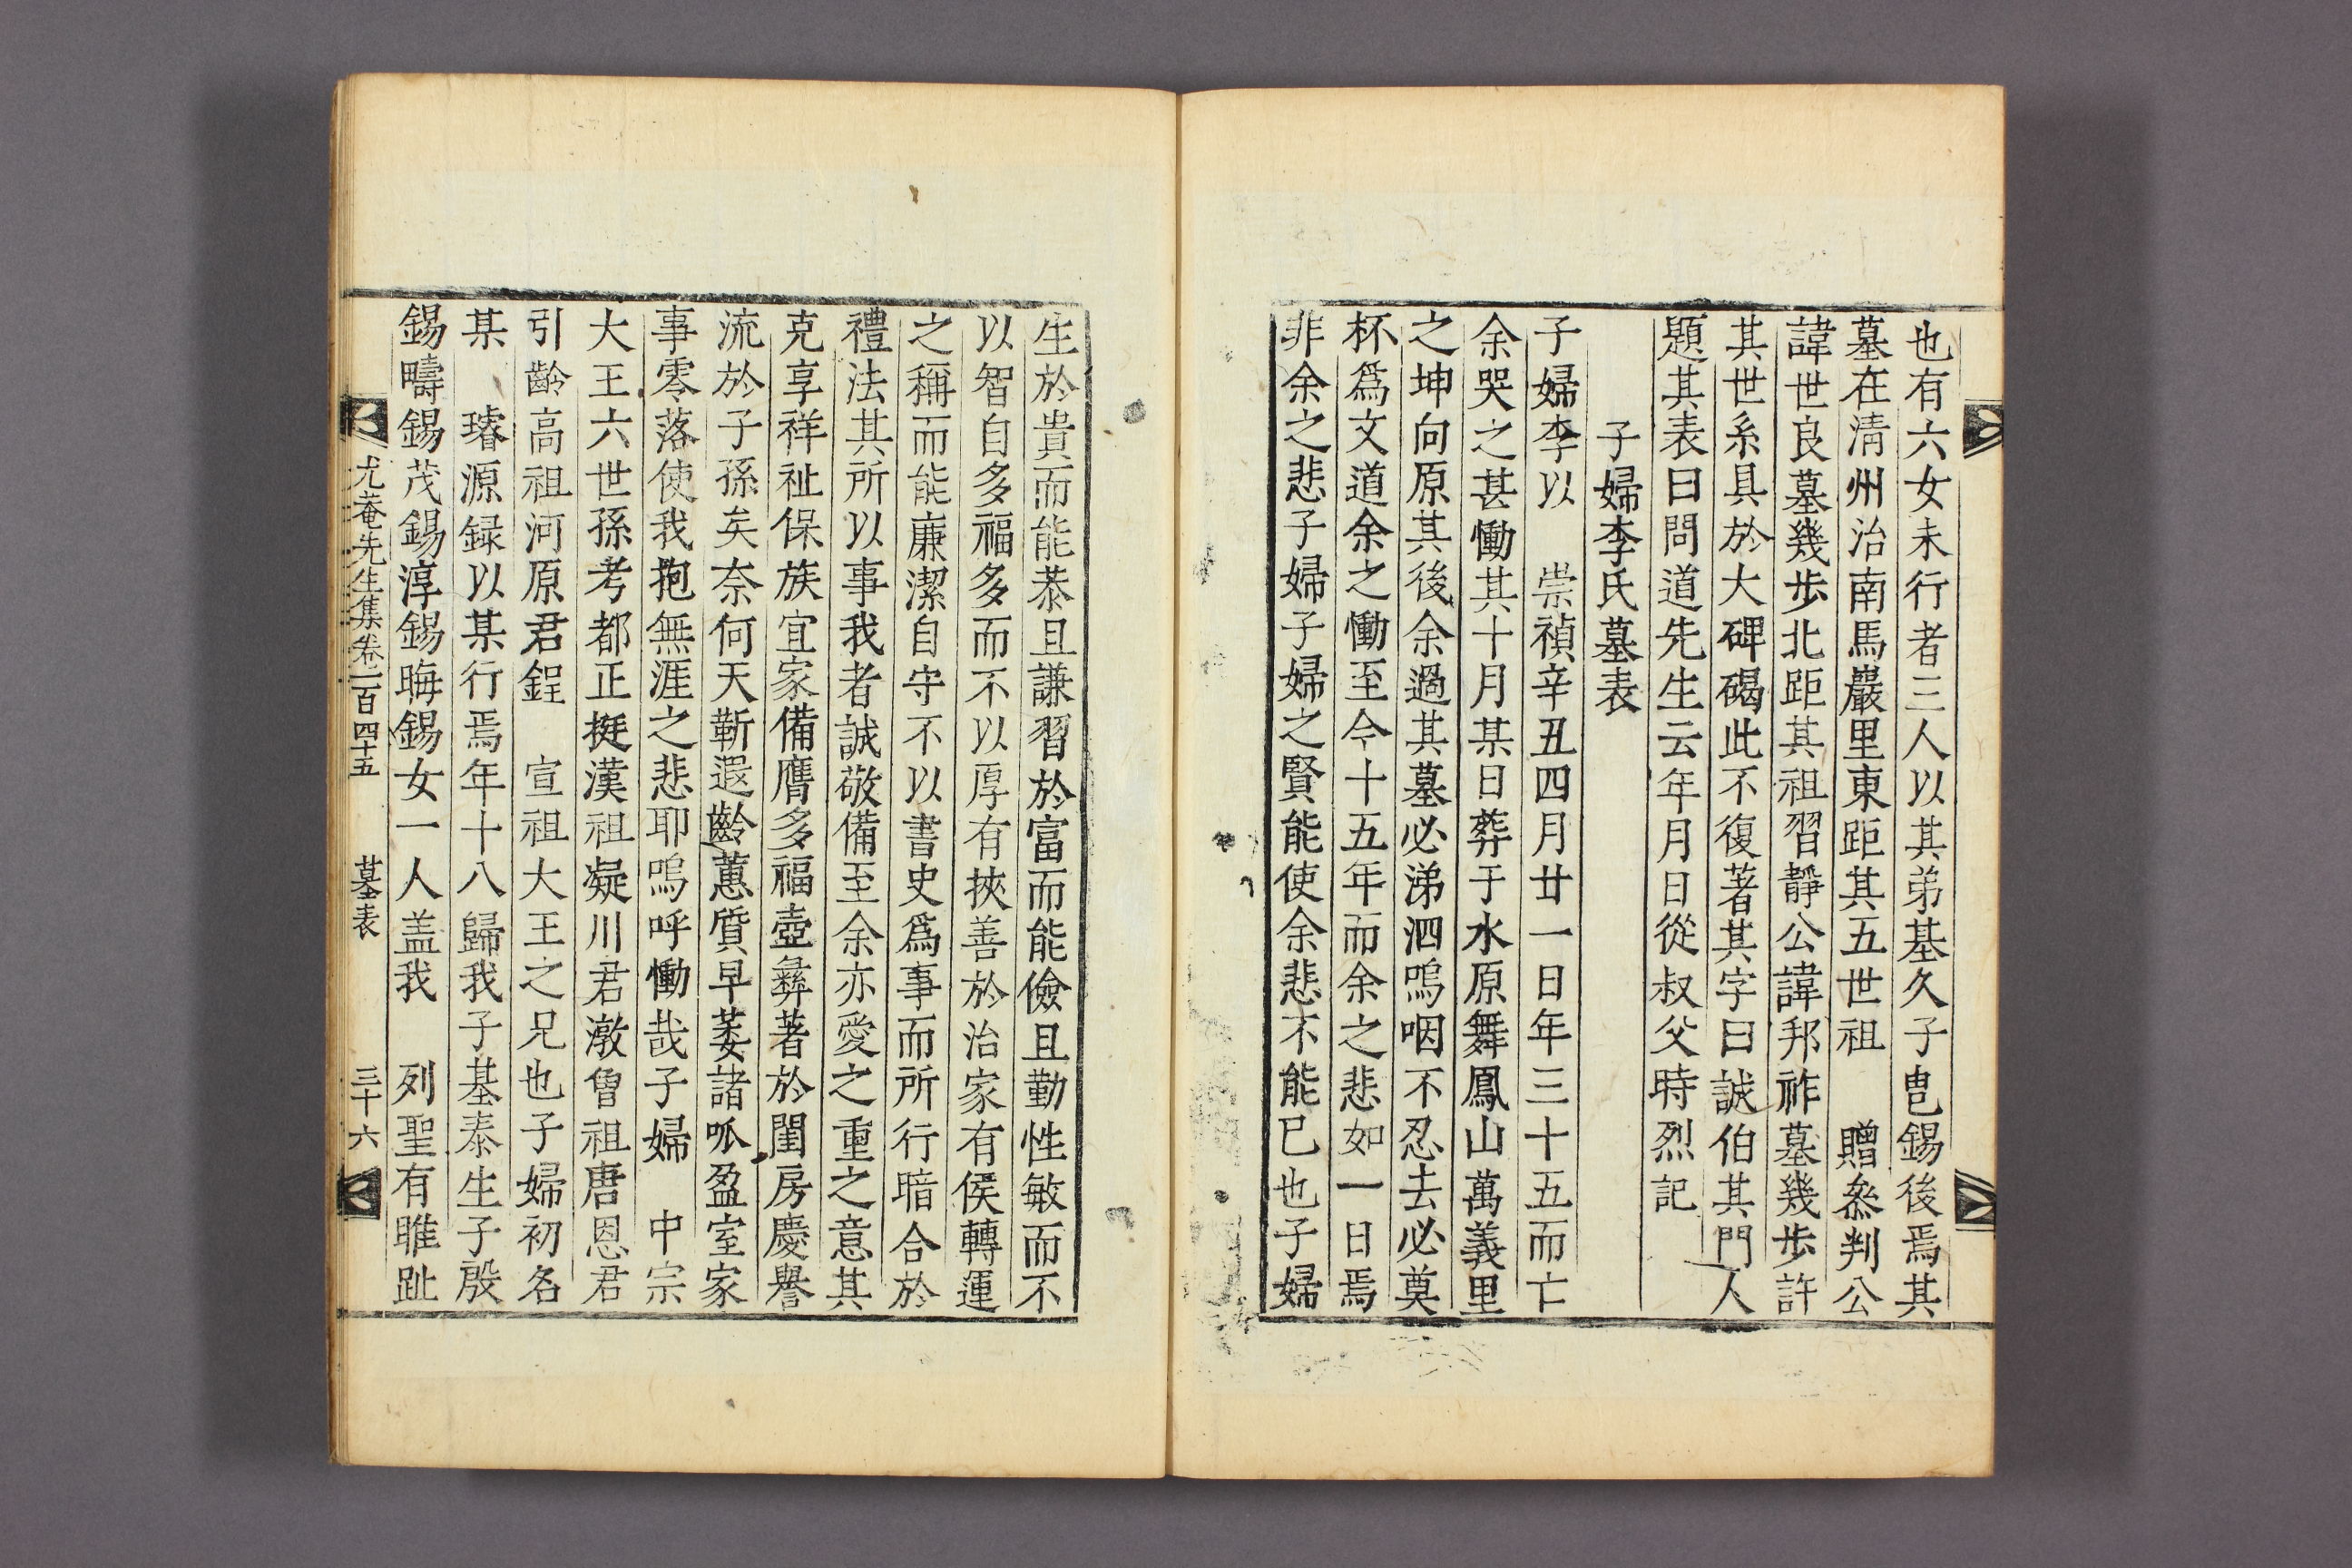 也有六女未行者三人以其弟基久子皀錫後焉其
墓在清州治南馬巖里東距其五世祖 贈叅判公
諱世良墓幾步北距其祖習靜公諱邦祚墓幾步許
其世系具於大碑碣此不復著其字曰誠伯其門人
題其表曰問道先生云年月日從叔父時烈記
子婦李氏墓表
子婦李以 崇禎辛丑四月廿一日年三十五而亡
余哭之甚慟其十月某日葬于水原舞鳳山萬義里
之坤向原其後余過其墓必涕泗嗚咽不忍去必奠
杯爲文道余之慟至今十五年而余之悲如一日焉
非余之悲子婦子婦之賢能使余悲不能已也子婦
生於貴而能恭且謙習於富而能儉且勤性敏而不
以智自多福多而不以厚有挾善於治家有侯轉運
之稱而能廉潔自守不以書史爲事而所行暗合於
禮法其所以事我者誠敬備至余亦愛之重之意其
克享祥祉保族宜家備膺多福壼彝著於閨房慶譽
流於子孫矣奈何天靳遐齡蕙質早萎諸呱盈室家
事零落使我抱無涯之悲耶嗚呼慟哉子婦 中宗
大王六世孫考都正挺漢祖凝川君潡曾祖唐恩君
引齡高祖河原君鋥 宣祖大王之兄也子婦初名
某 璿源録以某行焉年十八歸我子基泰生子殷
錫疇錫茂錫淳錫晦錫女一人盖我 列聖有雎趾
尤菴先生集卷一百四十五 墓表 三十六